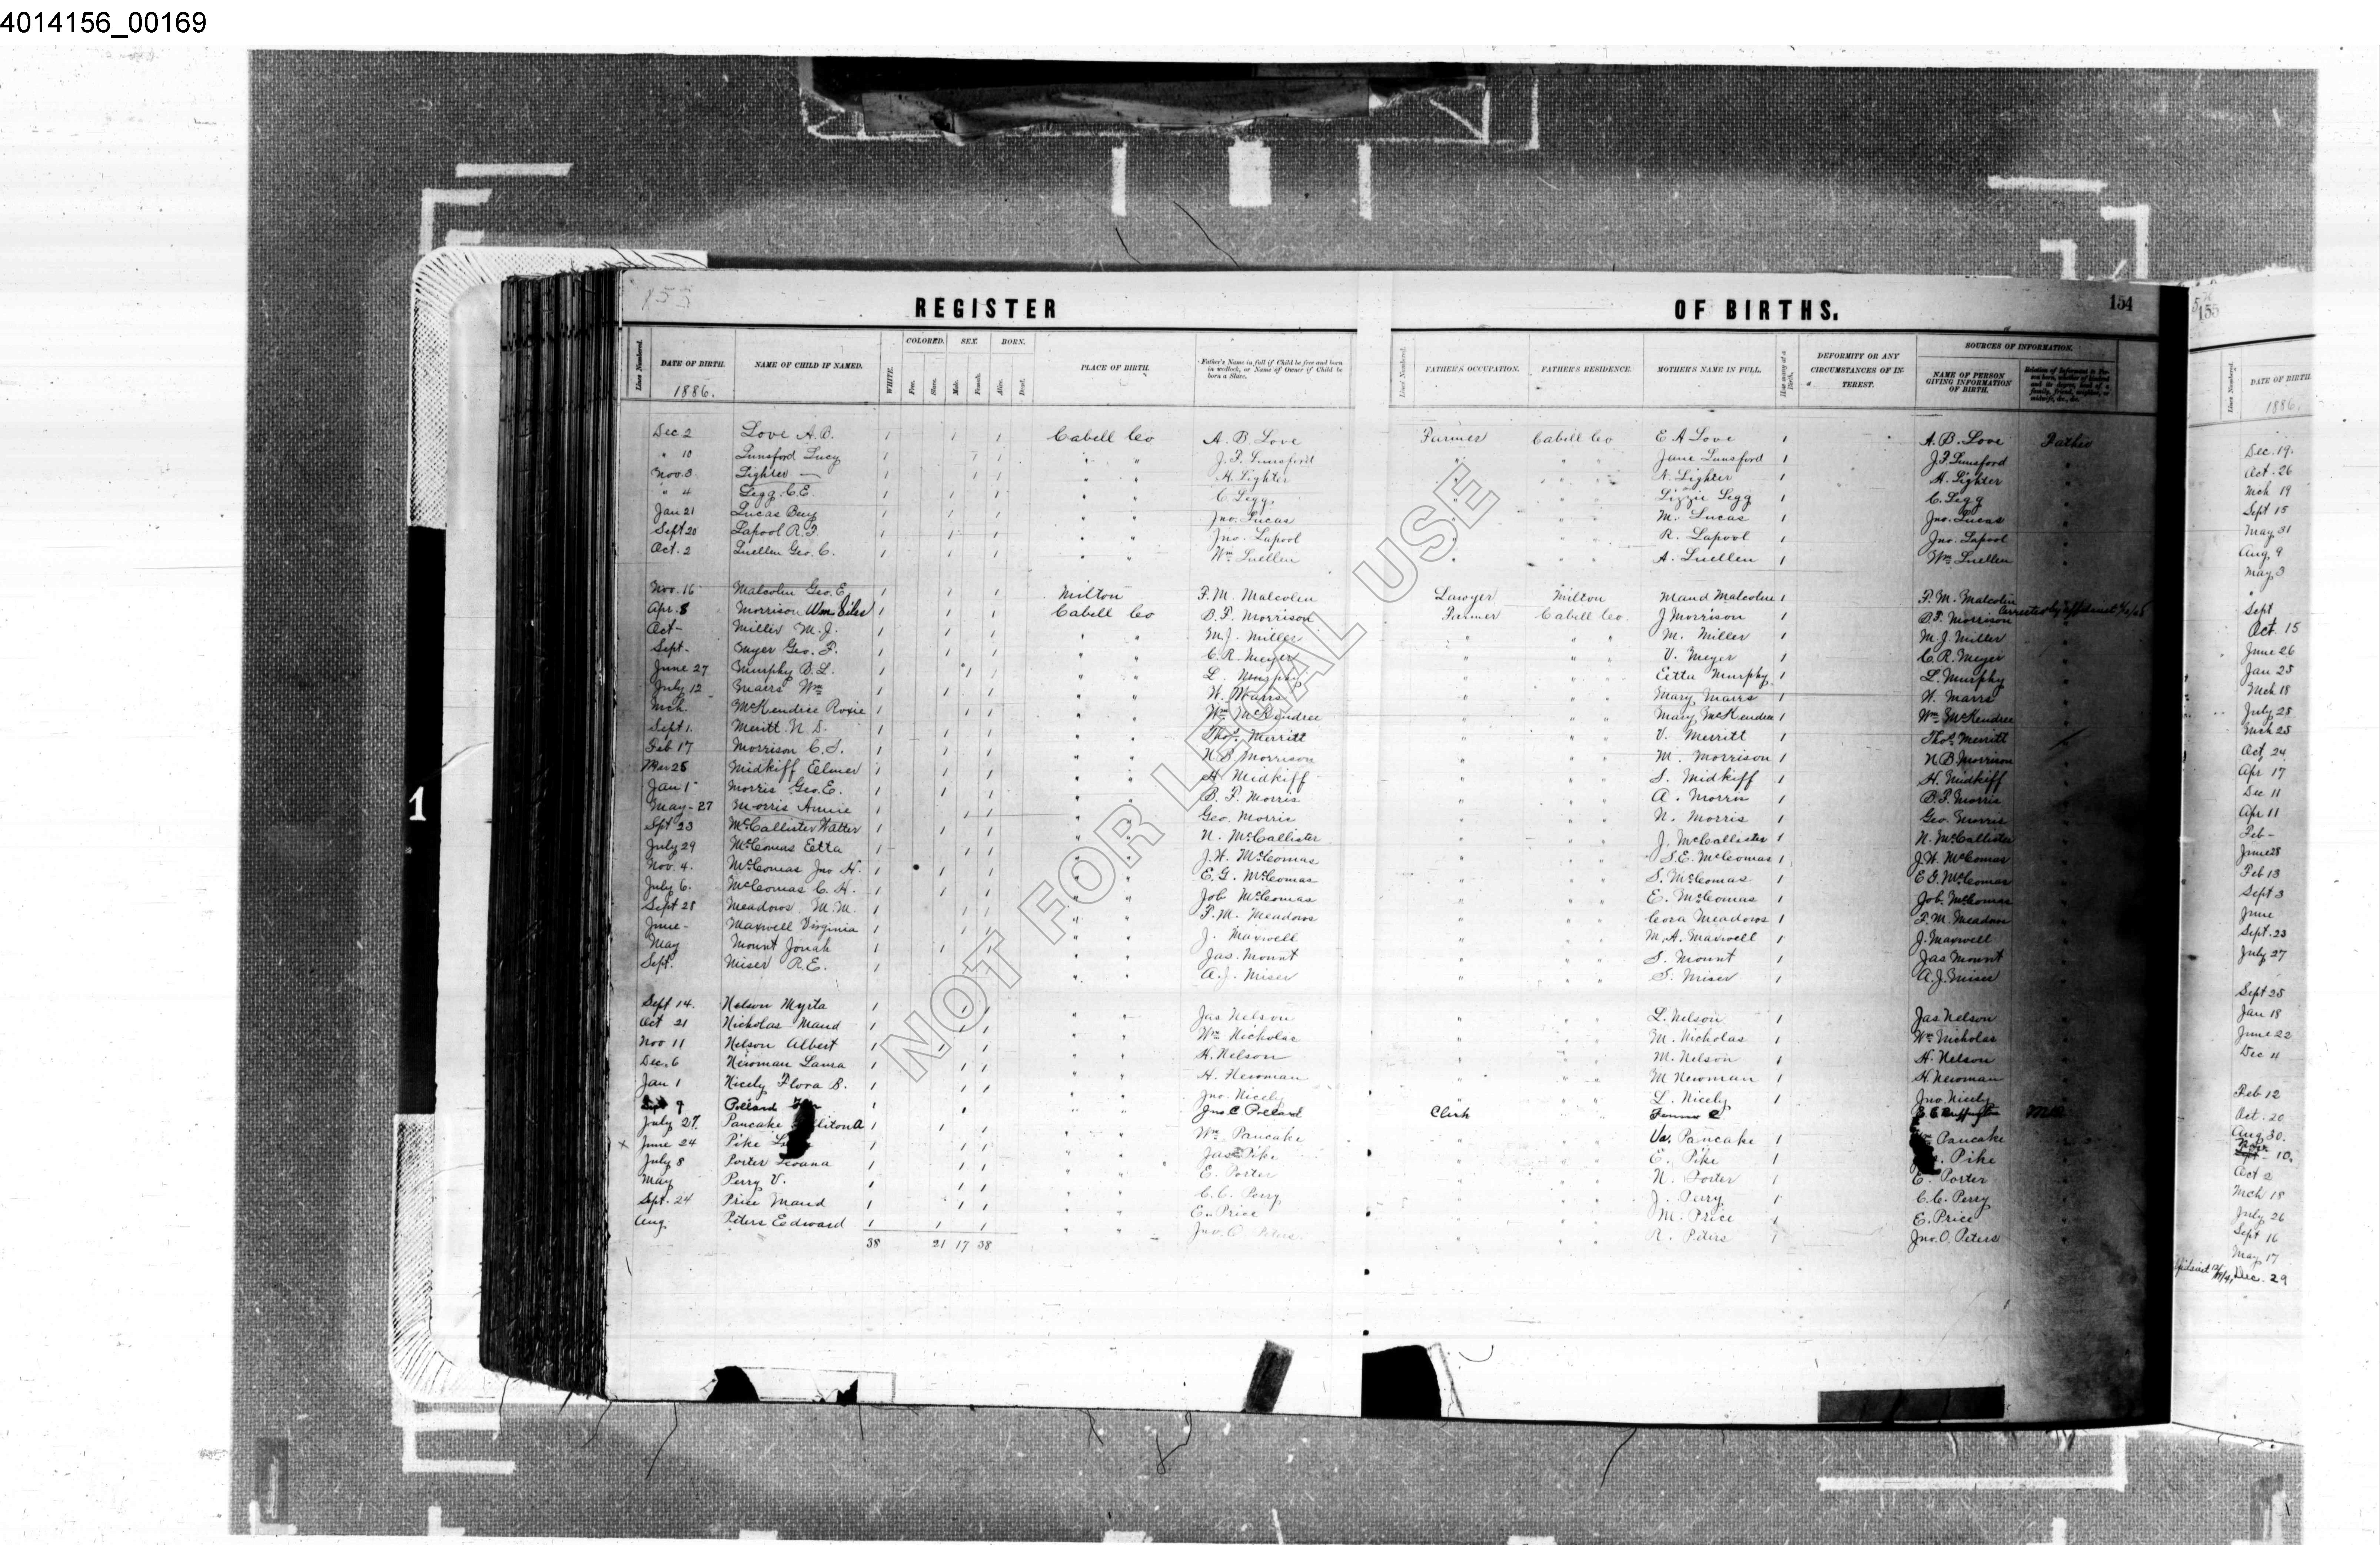 4014156_00169
155
REGISTER OF BIRTHS. 154
Lines Numbered. DATE OF BIRTH. NAME OF CHILD IF NAMED. WHITE. COLORED. Free. Slave. SEX. Male. Female. BORN. Alive. Dead. PLACE OF BIRTH. Father's Name in full if Child be free and born in wedlock, or Name of Owner if Child be born a Slave. Lines Numbered. FATHER'S OCCUPATION. FATHER'S RESIDENCE. MOTHER'S NAME IN FULL. How many at a Birth. DEFORMITY OR ANY CIRCUMSTANCES OF INTEREST. SOURCES OF INFORMATION. NAME OF PERSON GIVING INFORMATION OF BIRTH.
1886.
Dec 2 Love A.B. 1 1 1 Cabell Co A. B. Love Farmer Cabell Co E A Love 1 A. B. Love Father
" 10 Lunsford Lucy 1 1 1 " " J. F. Lunsford " " " Jane Lunsford 1 J. F. Lunsford "
Nov. 3 Lighter — 1 1 1 " " H. Lighter " " " N. Lighter 1 H. Lighter "
" 4 Legg C.E. 1 1 1 " " C. Legg " " " Lizzie Legg 1 C. Legg "
Jan 21 Lucas Benj 1 1 1 " " Jno. Lucas " " " M. Lucas 1 Jno. Lucas "
Sept 20 Lapool R.F. 1 1 1 " " Jno. Lapool " " " R. Lapool 1 Jno. Lapool "
Oct. 2 Luellen Geo. C. 1 1 1 " " Wm Luellen " " " A. Luellen 1 Wm Luellen "
Nov. 16 Malcolm Geo. E. 1 1 1 Milton F. M. Malcolm Lawyer Milton Maud Malcolm 1 F. M. Malcolm "
Apr. 8 Morrison Wm Siles 1 1 1 Cabell Co B. F. Morrison Farmer Cabell Co. J Morrison 1 B. F. Morrison corrected by affidavit
Oct - Miller M. J. 1 1 1 " " M. J. Miller " " " M. Miller 1 M. J. Miller "
Sept - Myer Geo. F. 1 1 1 " " C. R. Meyer " " " V. Meyer 1 C. R. Meyer "
June 27 Murphy B. L. 1 1 1 " " L. Murphy " " " Eitta Murphy 1 L. Murphy "
July 12 Mairs Wm 1 1 1 " " W. Mairs " " " Mary Mairs 1 W. Marrs "
Mch. McKendree Roxie 1 1 1 " " Wm McKendree " " " Mary McKendree 1 Wm McKendree "
Sept 1. Meritt N. S. 1 1 1 " " Thos. Merritt " " " V. Merritt 1 Thos Merritt "
Feb 17 Morrison C. S. 1 1 1 " " N B Morrison " " " M. Morrison 1 N B Morrison "
Mar 25 Midkiff Elmer 1 1 1 " " H Midkiff " " " S. Midkiff 1 H. Midkiff "
Jan 1 Morris Geo. E. 1 1 1 " " B. F. Morris " " " A. Morris 1 B. F. Morris "
May - 27 Morris Annie 1 1 1 " " Geo. Morris " " " N. Morris 1 Geo. Morris "
Sept 23 McCallister Walter 1 1 1 " " N. McCallister " " " J. McCallister 1 N. McCallister "
July 29 McComas Eetta 1 1 1 " " J. W. McComas " " " S. E. McComas 1 J. W. McComas "
Nov. 4. McComas Jno H. 1 1 1 " " E. G. McComas " " " S. McComas 1 E G. McComas "
July 6. McComas C. H. 1 1 1 " " Job McComas " " " E. McComas 1 Job. McComas "
Sept 28 Meadows M. M. 1 1 1 " " F. M. Meadows " " " Cora Meadows 1 F. M. Meadows "
June - Maxwell Virginia 1 1 1 " " J. Maxwell " " " M. A. Maxwell 1 J. Maxwell "
May Mount Jonah 1 1 1 " " Jas. Mount " " " S. Mount 1 Jas Mount "
Sept. Miser R. E. 1 1 1 " " A. J. Miser " " " S. Miser 1 A. J. Miser "
Sept 14. Nelson Myrta 1 1 1 " " Jas Nelson " " " L. Nelson 1 Jas Nelson "
Oct 21 Nicholas Maud 1 1 1 " " Wm Nicholas " " " M. Nicholas 1 Wm Nicholas "
Nov 11 Nelson Albert 1 1 1 " " H. Nelson " " " M. Nelson 1 H. Nelson "
Dec. 6 Newman Laura 1 1 1 " " H. Newman " " " M Newman 1 H. Newman "
Jan 1 Nicely Flora B. 1 1 1 " " Jno. Nicely " " " L. Nicely 1 Jno. Nicely "
Sept 9 Pollard 1 1 " " Jno. C Pollard Clerk " "
July 27. Pancake 1 1 1 " " Wm Pancake " " " Va. Pancake 1 Pancake "
x June 24 Pike 1 1 1 " " Jas Pike " " " E. Pike 1 Pike "
July 8 Porter Leoana 1 1 1 " " E. Porter " " " N. Porter 1 E. Porter "
May Perry V. 1 1 1 " " C. C. Perry " " " J. Perry 1 C. C. Perry "
Sept. 24 Price Maud 1 1 1 " " E. Price " " " M. Price 1 E. Price "
Aug. Peters Eedward 1 1 1 " " Jno. O. Peters " " " R. Peters 1 Jno. O. Peters "
38 21 17 38
NOT FOR LEGAL USE
1
155
Lines Numbered. DATE OF BIRTH
1886.
Dec. 19.
Oct. 26
Mch 19
Sept 15
May 31
Aug. 9
May 3
Sept
Oct. 15
June 26
Jan 25
Mch 18
July 28
Mch 25
Oct. 24
Apr 17
Dec 11
Apr 11
Feb -
June 28
Feb 13
Sept 3
June
Sept. 23
July 27
Sept 25
Jan 18
June 22
Dec 11
Feb 12
Oct. 20
Aug 30.
Nov. 10.
Oct 2
Mch 18
July 26
Sept 16
May 17
Dec. 29